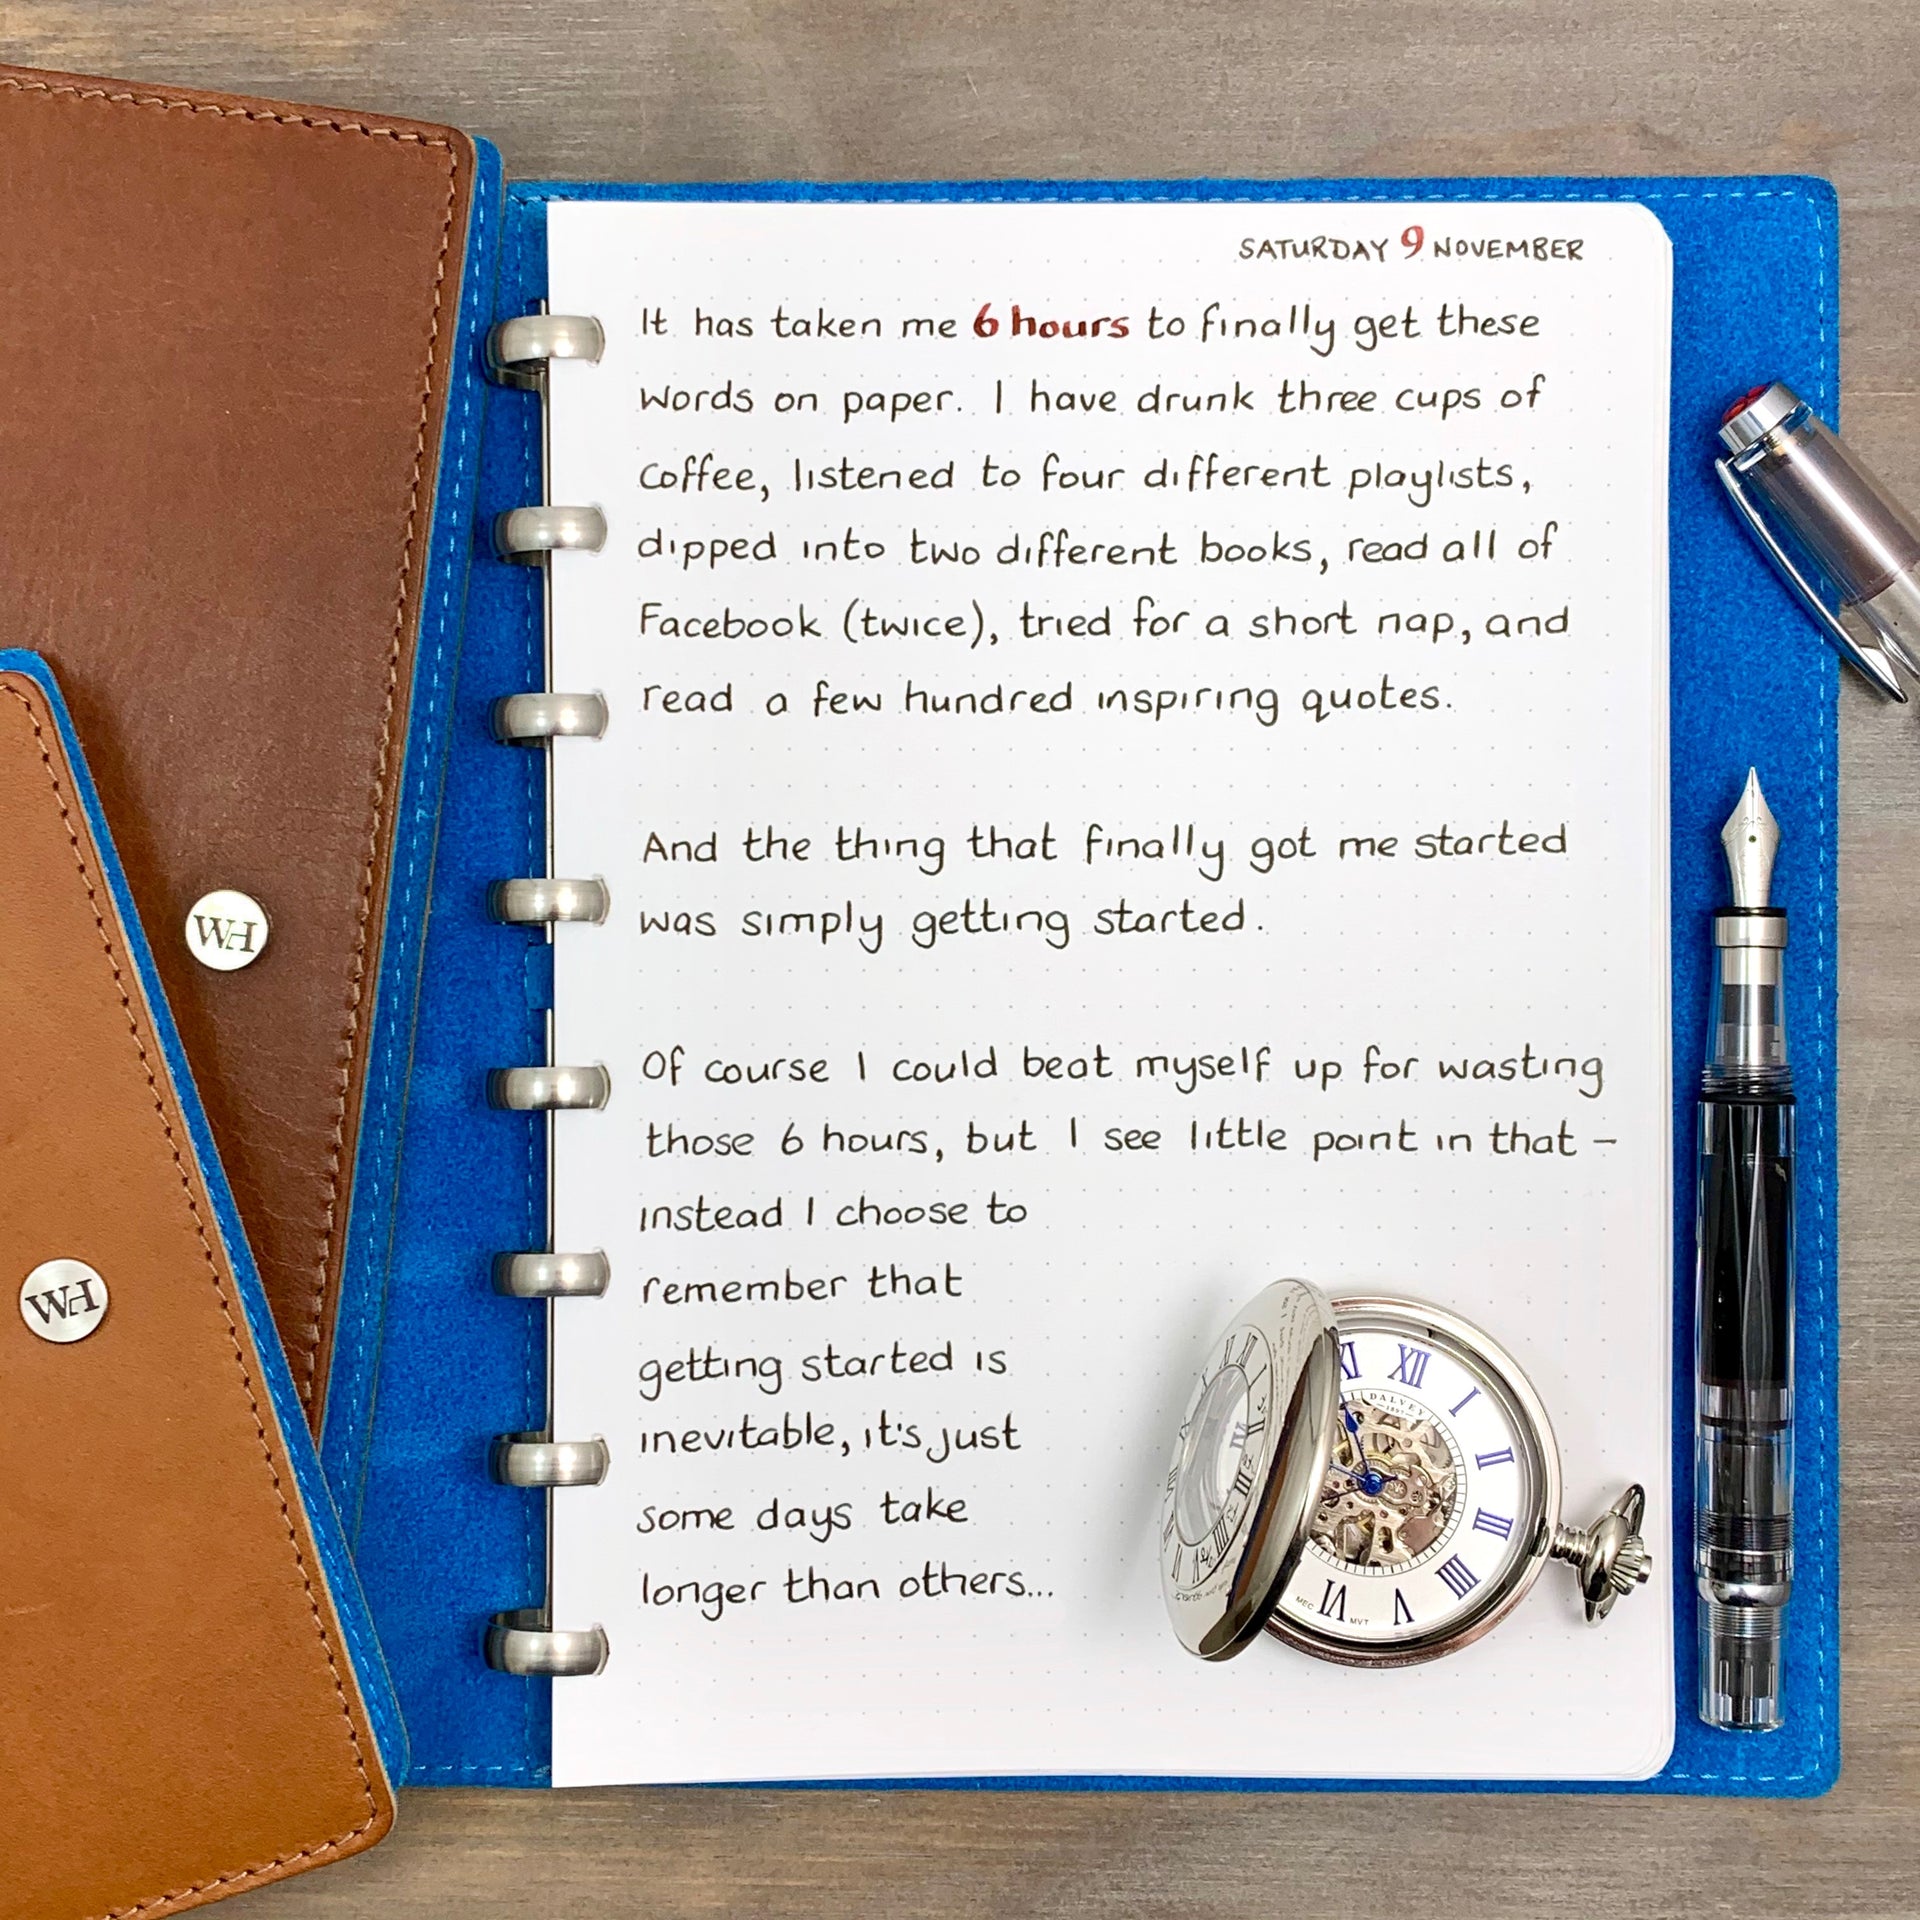 SATURDAY 9 NOVEMBER
It has taken me 6 hours to finally get these
words on paper. I have drunk three cups of
coffee, listened to four different playlists,
dipped into two different books, read all of
Facebook (twice), tried for a short nap, and
read a few hundred inspiring quotes.
And the thing that finally got me started
was simply getting started.
Of course I could beat myself up for wasting
those 6 hours, but I see little point in that –
instead I choose to
remember that
getting started is
inevitable, it's just
some days take
longer than others...
WH
WH
XI XII I II III IIII V VI
DALVEY
1897
MEC MVT